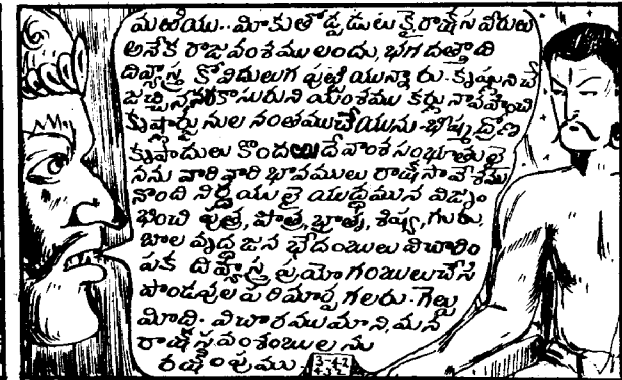 మఱియు.. మీకుతోడ్పడులకై రాక్షస వీరులు
అనేక రాజవంశములందు, భగదత్తాది
దివ్యాస్త్ర కోవిదులుగ పుట్టియున్నారు. కృష్ణునిచే
జచ్చిన నరకాసురుని యంశము కర్ణు నావహించి
కృష్ణార్జునుల నంతముచేయును. భీష్మ ద్రోణ
కృపాదులు కొందఱు దేవాంశ సంభూతులై
నను వారి వారి భావములు రాక్షసావేశము
నొంది నిర్దయులై యుద్ధమున విజృం
భించి పుత్ర, పౌత్ర, భ్రాతృ, శిష్య, గురు,
బాల వృద్ధ జన భేదంబులు విచారిం
పక దివ్యాస్త్ర ప్రయోగంబులుచేసి
పాండవుల పరిమార్పగలరు. గెల్పు
మీది. విచారముమాని, మన
రాక్షస వంశంబులను
రక్షింపుము